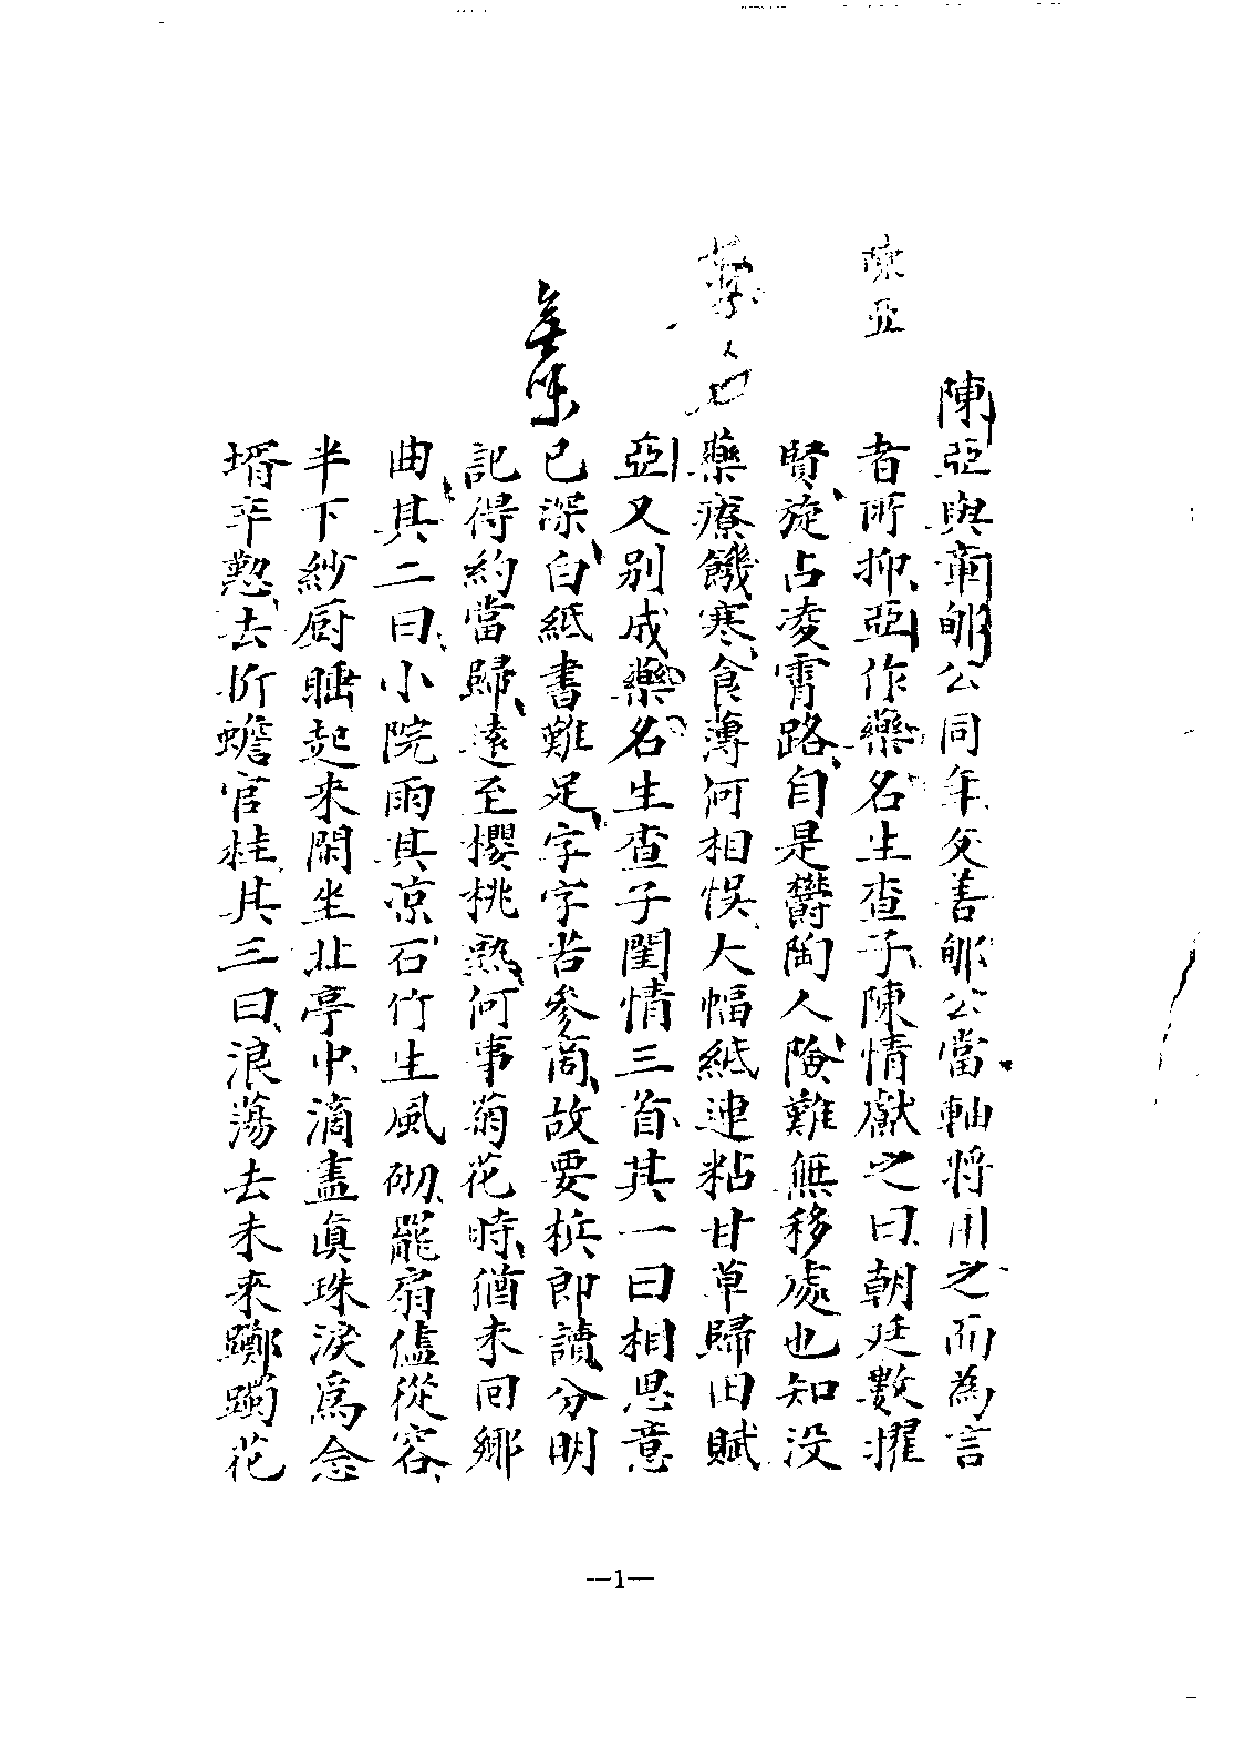 陳亞
藥名
陳亞與章郇公同年友善郇公當軸将用之而為言
者所抑亞作藥名生查子陳情獻之曰朝廷數擢
賢旋占凌霄路自是欝陶人險難無移處也知没
藥療饑寒食薄何相悞大幅紙連粘甘草歸田賦
亞又别成藥名生查子閨情三首其一曰相思意
已深白紙書難足字字苦參商故要梹郎讀分明
記得約當歸遠至櫻桃熟何事菊花時猶未回鄉
曲其二曰小院雨其凉石竹生風砌罷扇儘從容
半下紗厨睡起来閑坐北亭中滴盡真珠淚為念
壻辛懃去折蟾宫桂其三曰浪蕩去未来躑躅花
—1—